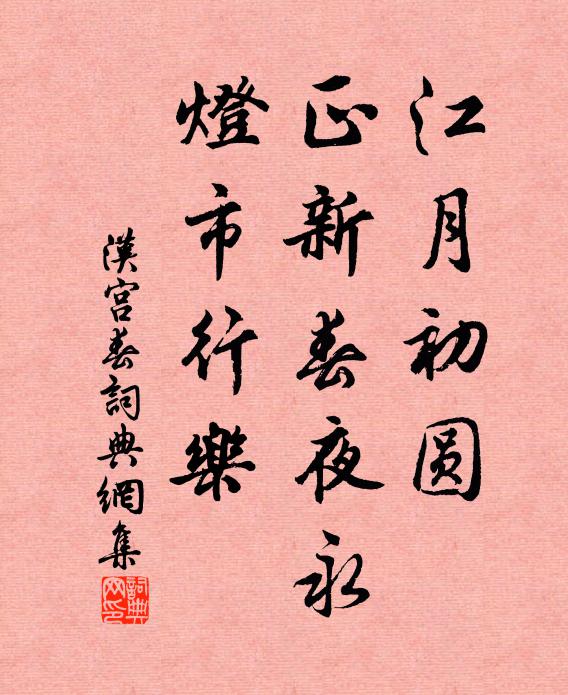 江月初圆
正新春夜永
燈市行樂
漢宮春詞典網集
詞典网印